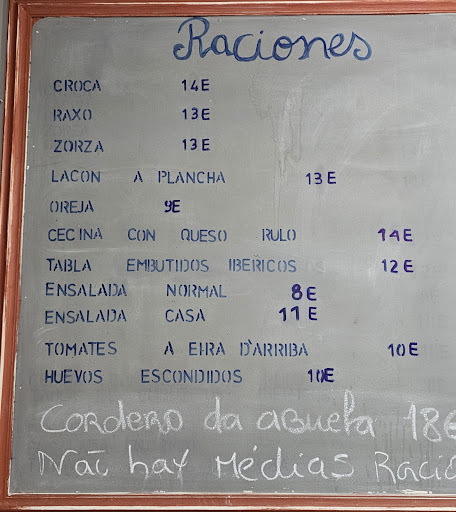 Raciones
CROCA 14E
RAXO 13E
ZORZA 13E
LACON A PLANCHA 13E
OREJA 9E
CECINA CON QUESO RULO 14E
TABLA EMBUTIDOS IBERICOS 12E
ENSALADA NORMAL 8E
ENSALADA CASA 11E
TOMATES A EIRA D'ARRIBA 10E
HUEVOS ESCONDIDOS 10E
Cordero da abuela 18€
Não hay Médias Racio